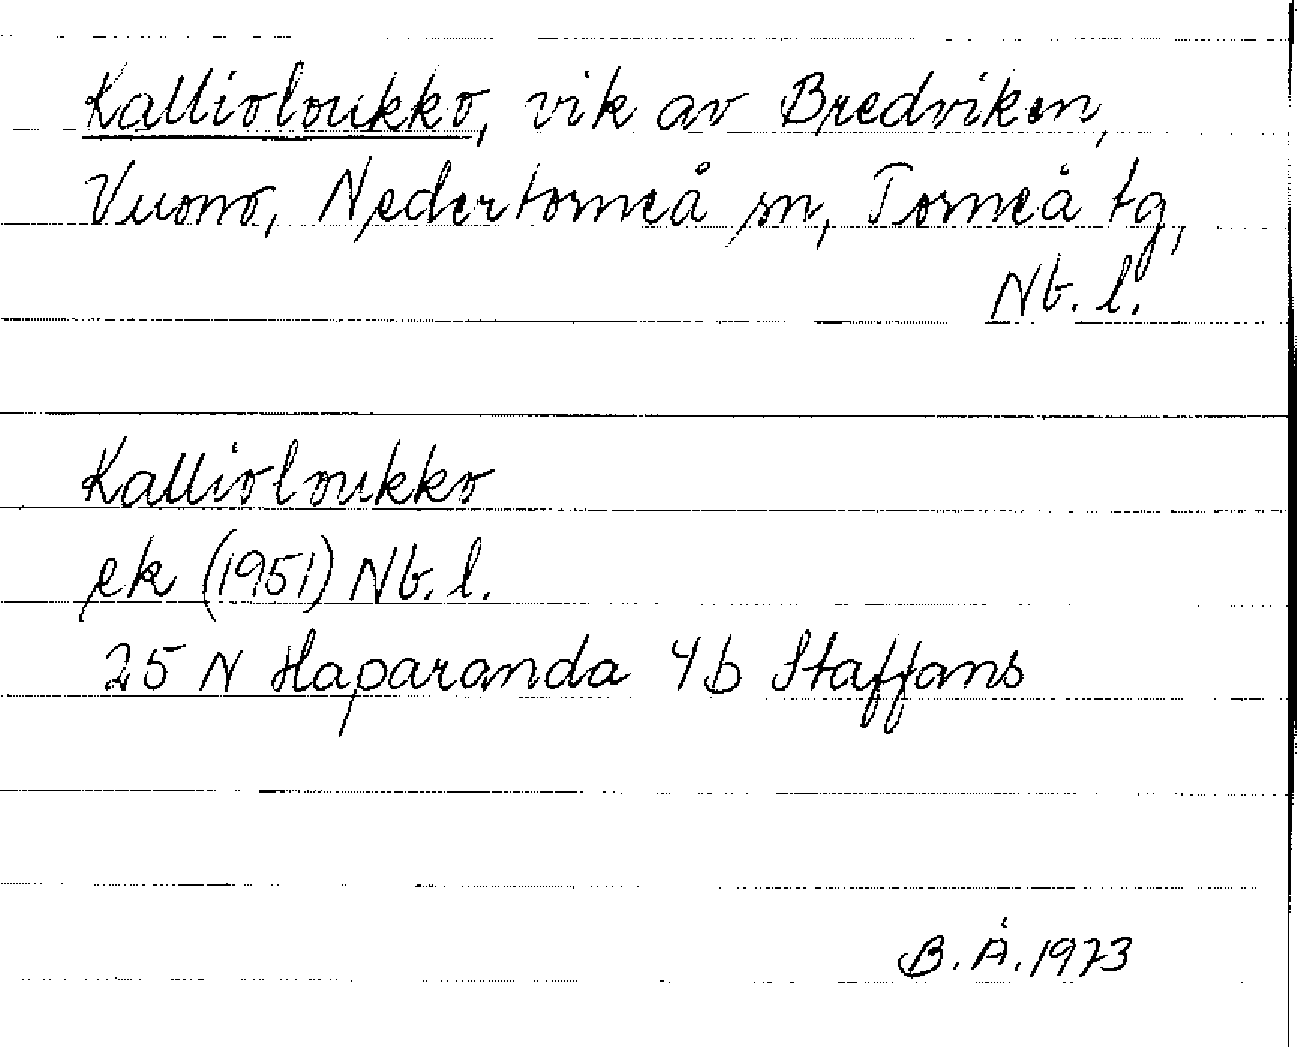 Kallioloukko, vik av Bredviken,
Vuono, Nedertorneå sn, Torneå tg,
Nb. l.
Kallioloukko
ek (1951) Nb. l.
25 N Haparanda 4b Staffans
B. Å. 1973